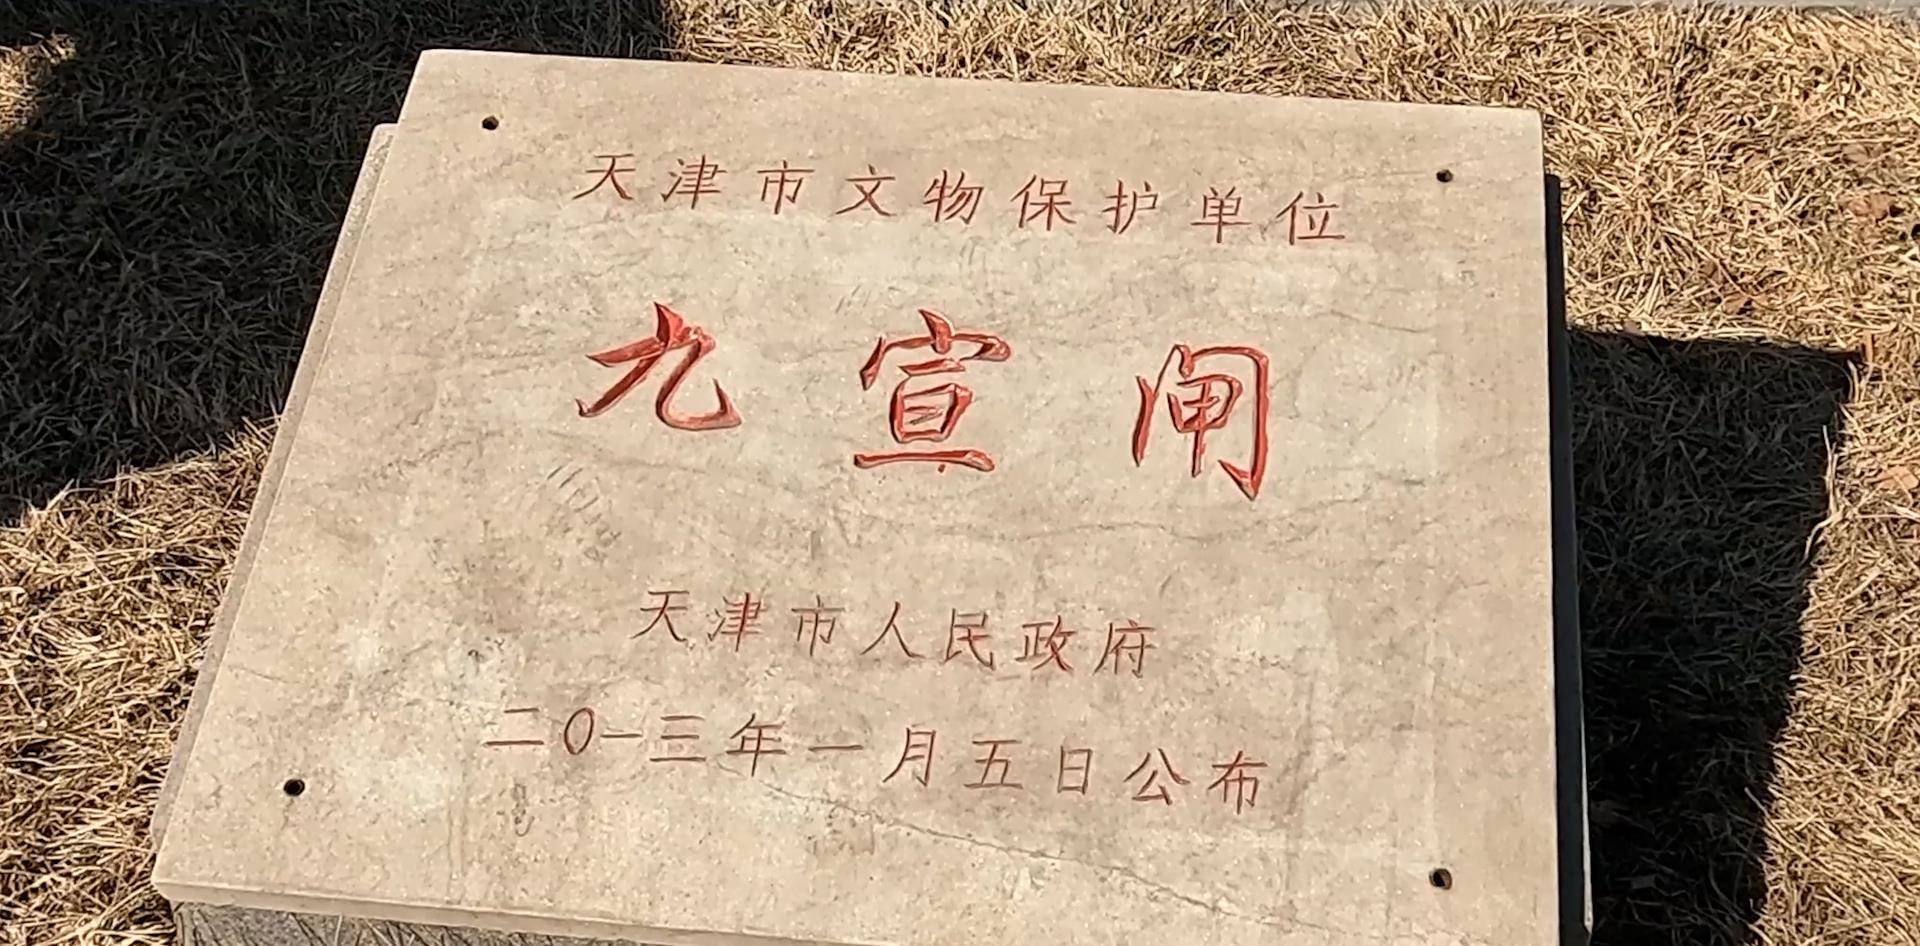 天津市文物保护单位
九宣闸
天津市人民政府
二〇一三年一月五日公布